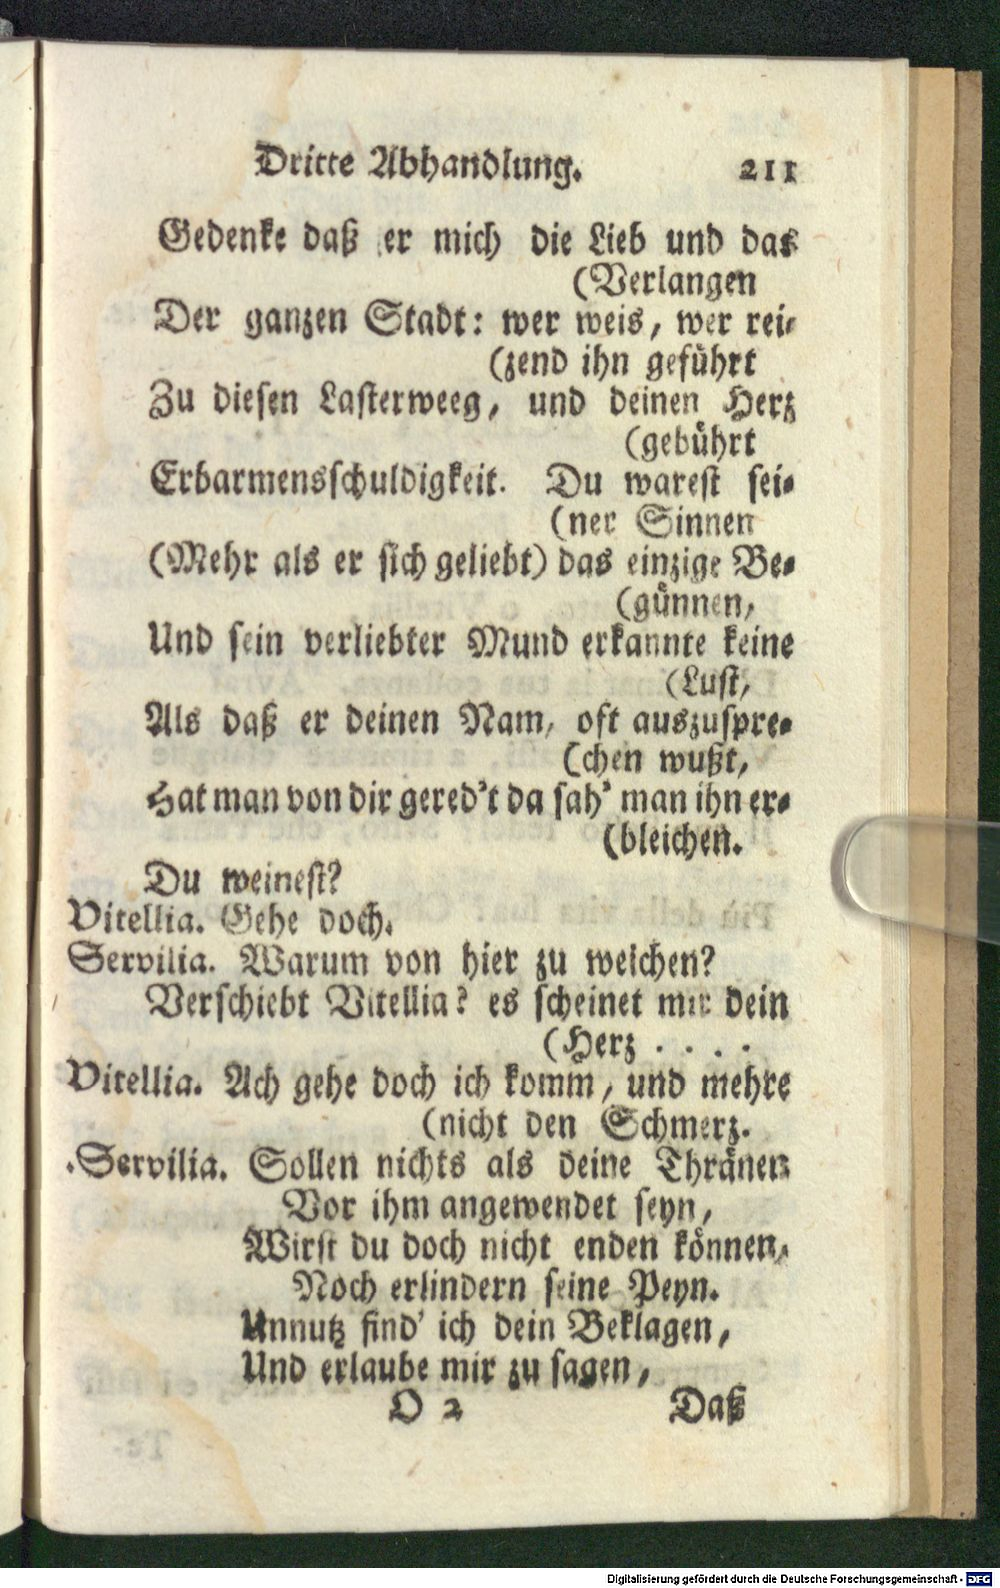 Dritte Abhandlung. 211
Gedenke daß er mich die Lieb und das
(Verlangen
Der ganzen Stadt: wer weis, wer rei-
(zend ihn geführt
Zu diesen Lasterweeg, und deinen Herz
(gebührt
Erbarmensschuldigkeit. Du warest sei-
(ner Sinnen
(Mehr als er sich geliebt) das einzige Be-
(günnen,
Und sein verliebter Mund erkannte keine
(Lust,
Als daß er deinen Nam, oft auszuspre-
(chen wußt,
Hat man von dir gered't da sah' man ihn er-
(bleichen.
Du weinest?
Vitellia. Gehe doch.
Servilia. Warum von hier zu weichen?
Verschiebt Vitellia? es scheinet mir dein
(Herz . . . .
Vitellia. Ach gehe doch ich komm, und mehre
(nicht den Schmerz.
Servilia. Sollen nichts als deine Thränen
Vor ihm angewendet seyn,
Wirst du doch nicht enden können,
Noch erlindern seine Peyn.
Unnutz find' ich dein Beklagen,
Und erlaube mir zu sagen,
O 2 Daß
Digitalisierung gefördert durch die Deutsche Forschungsgemeinschaft - DFG